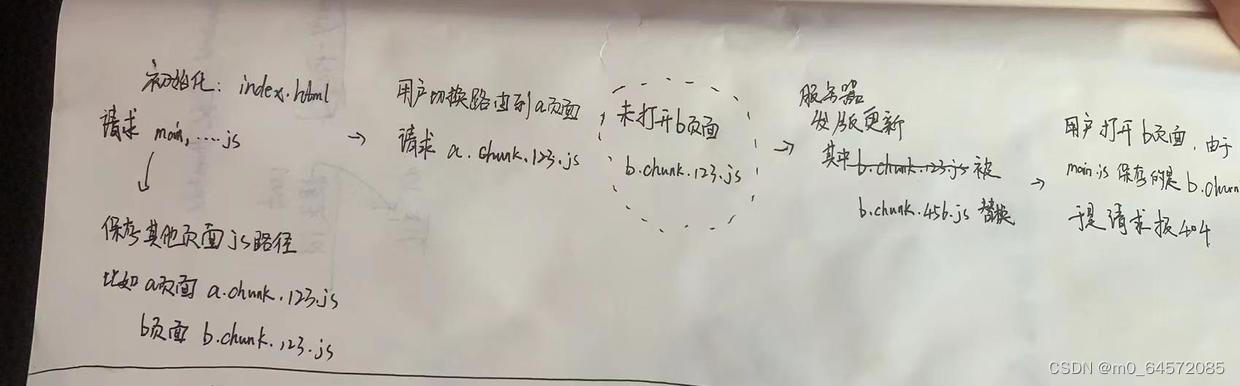 初始化: index.html
请求 main, ....js
保存其他页面js路径
比如a页面 a.chunk.123.js
b页面 b.chunk.123.js
→
用户切换路由到a页面
请求 a.chunk.123.js
未打开b页面
b.chunk.123.js
→
服务器
发版更新
其中b.chunk.123.js被
b.chunk.456.js 替换
→
用户打开b页面, 由于
main.js 保存的是 b.chun
于是请求报404
CSDN @m0_64572085